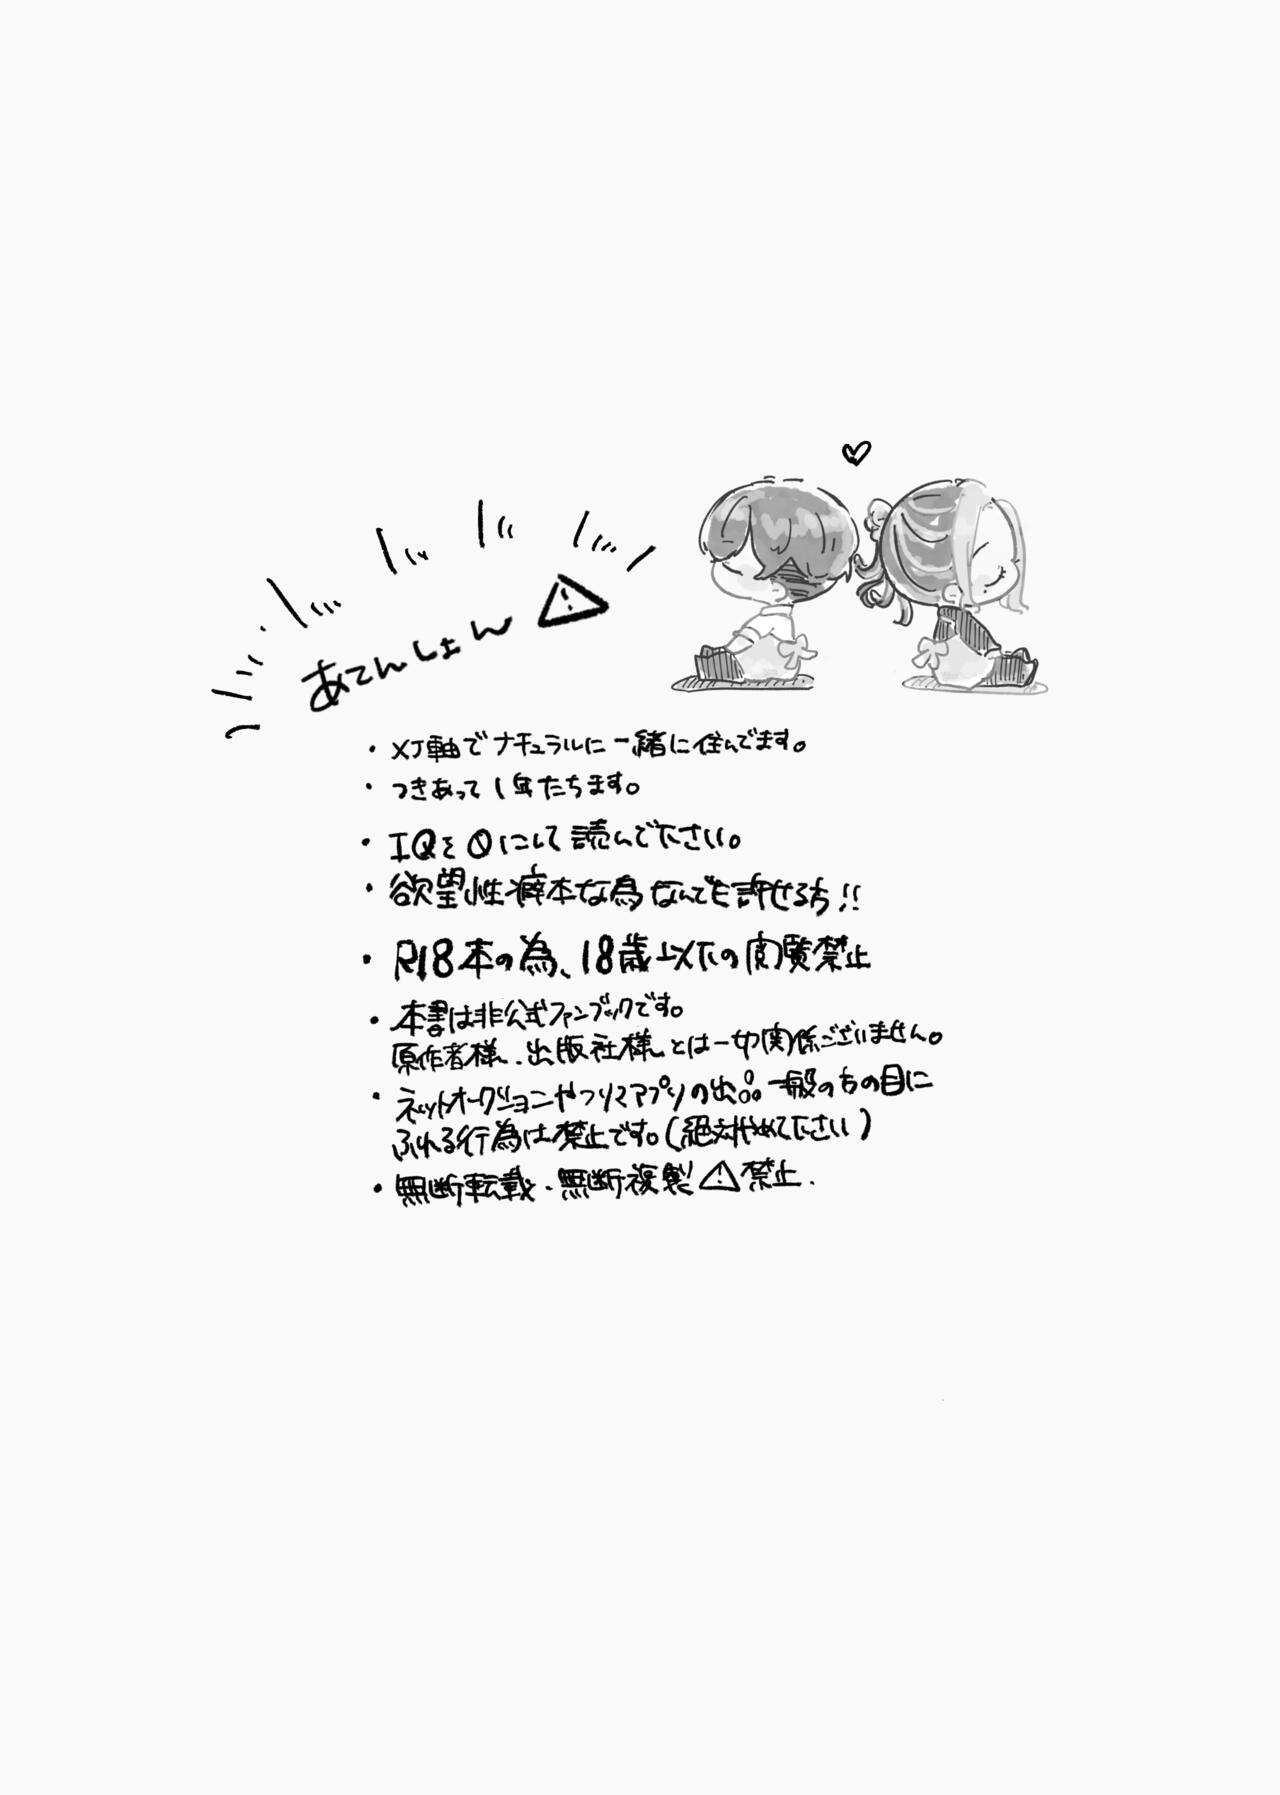 あてんしょん⚠
・XJ軸でナチュラルに一緒に住んでます。
・つきあって1年たちます。
・IQを0にして読んで下さい。
・欲望性癖本な為なんでも許せる方!!
・R18本の為、18歳以下の閲覧禁止
・本書は非公式ファンブックです。
原作者様、出版社様とは一切関係ございません。
・ネットオークションやフリマアプリの出品一般の方の目に
ふれる行為は禁止です。(絶対やめて下さい)
・無断転載・無断複製⚠禁止.